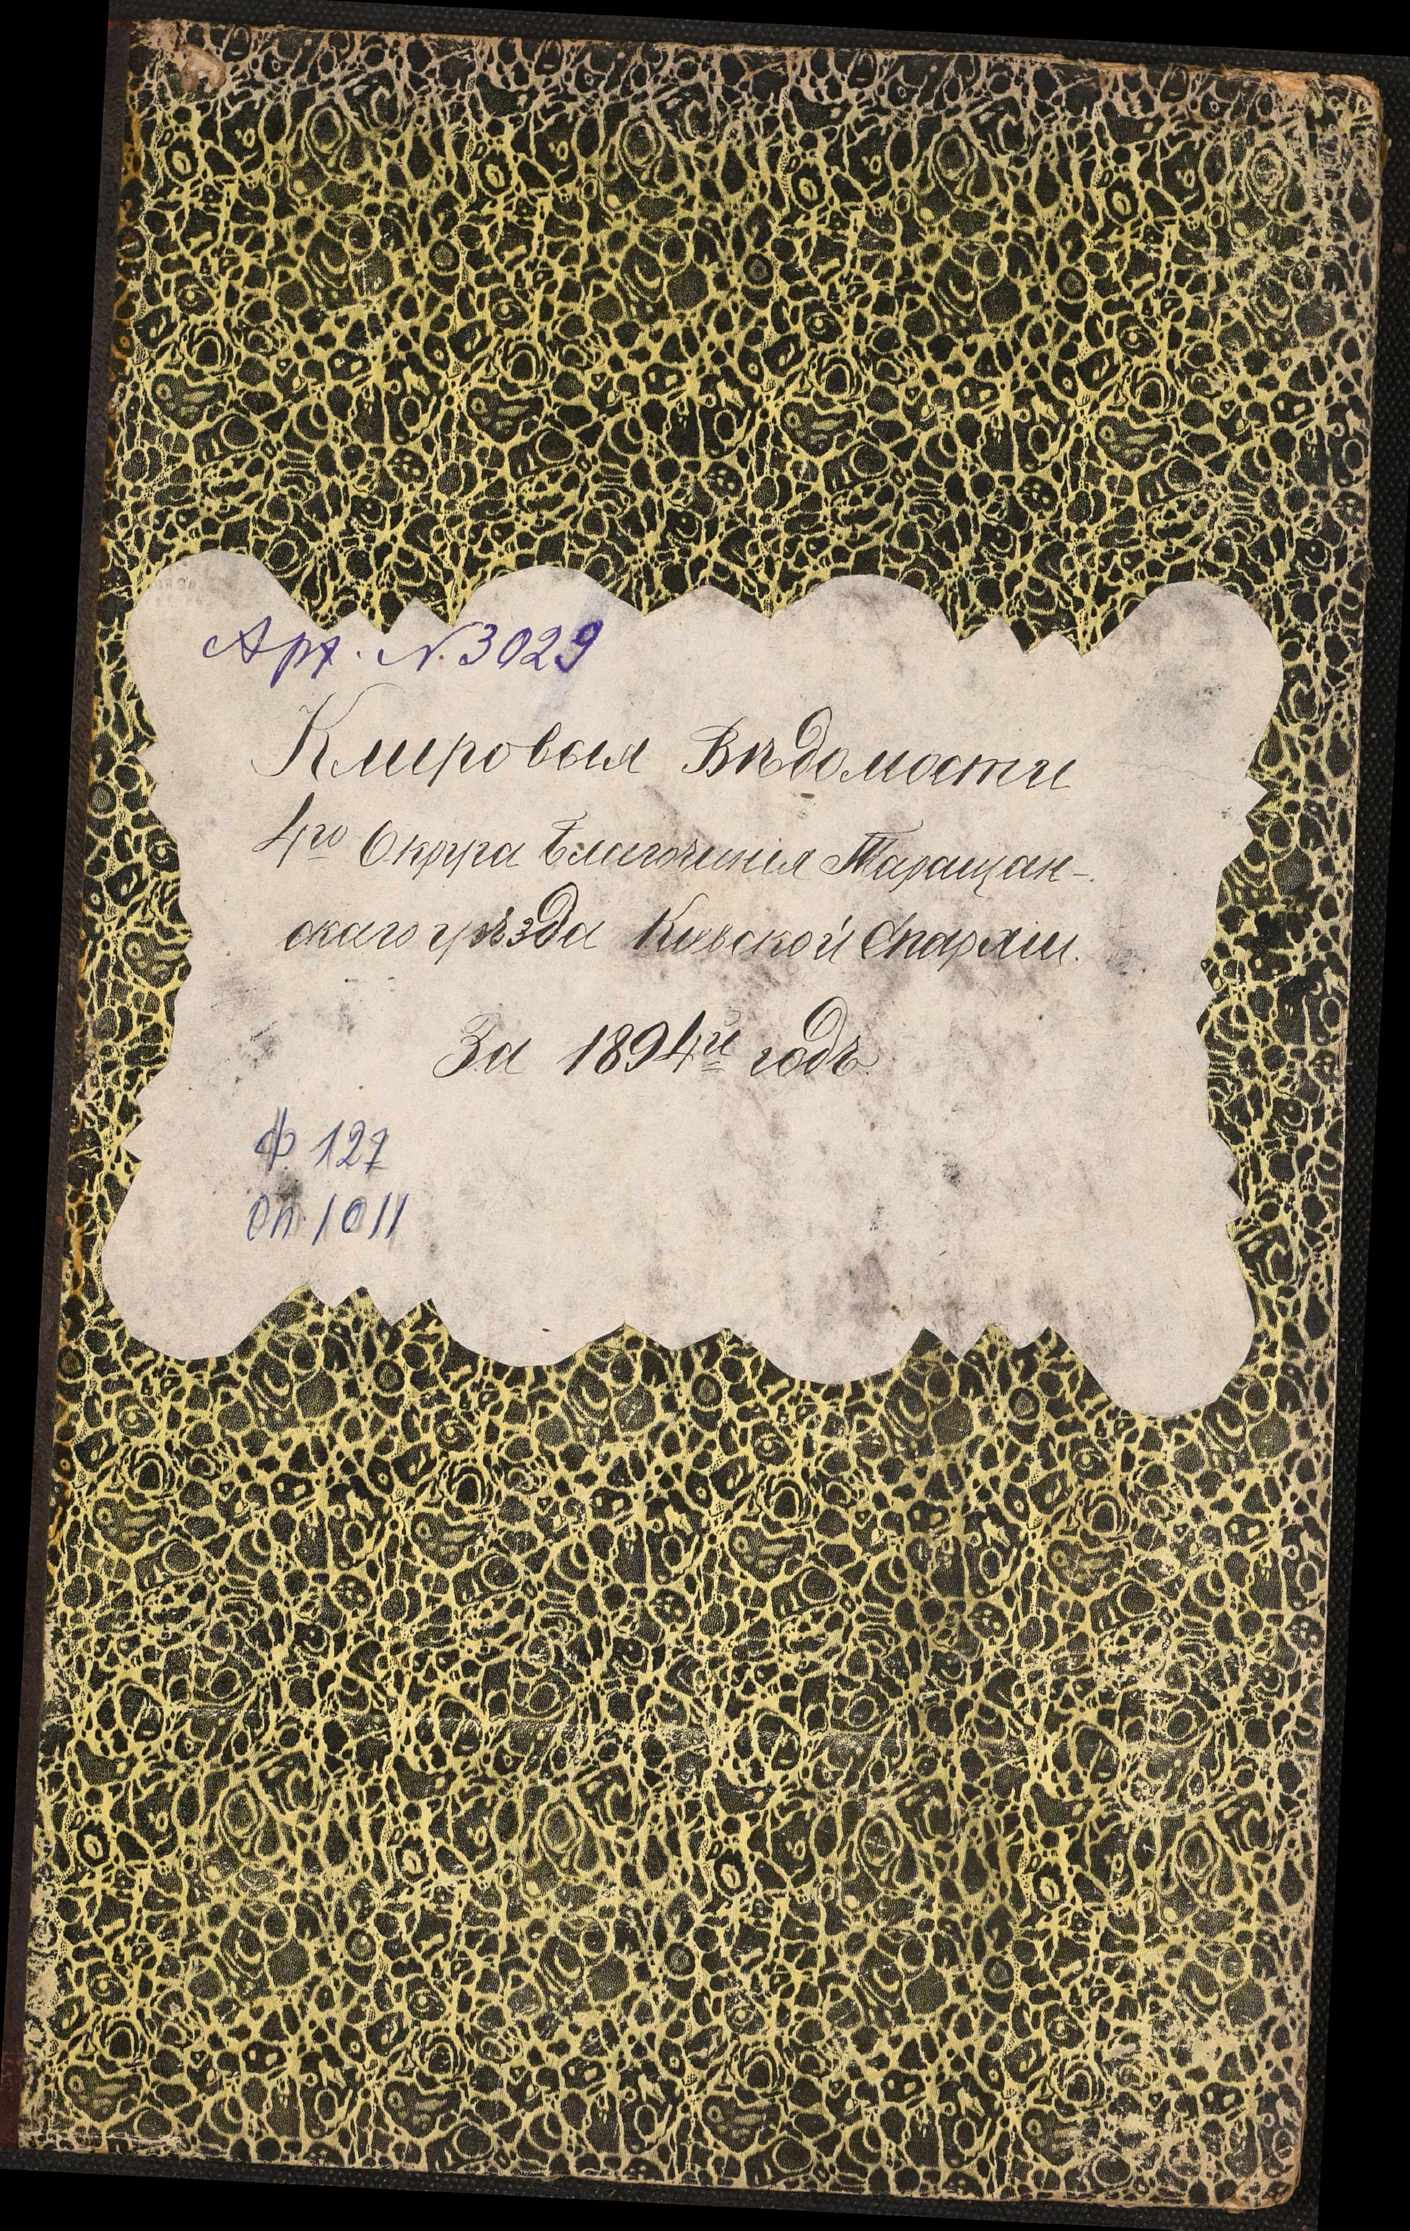 Арх. N. 3029
Клировыя Вѣдомости
4го Округа Благочинія Таращан-
скаго уѣзда Кіевской Епархіи.
За 1894й годъ.
Ф. 127
Оп. 1011